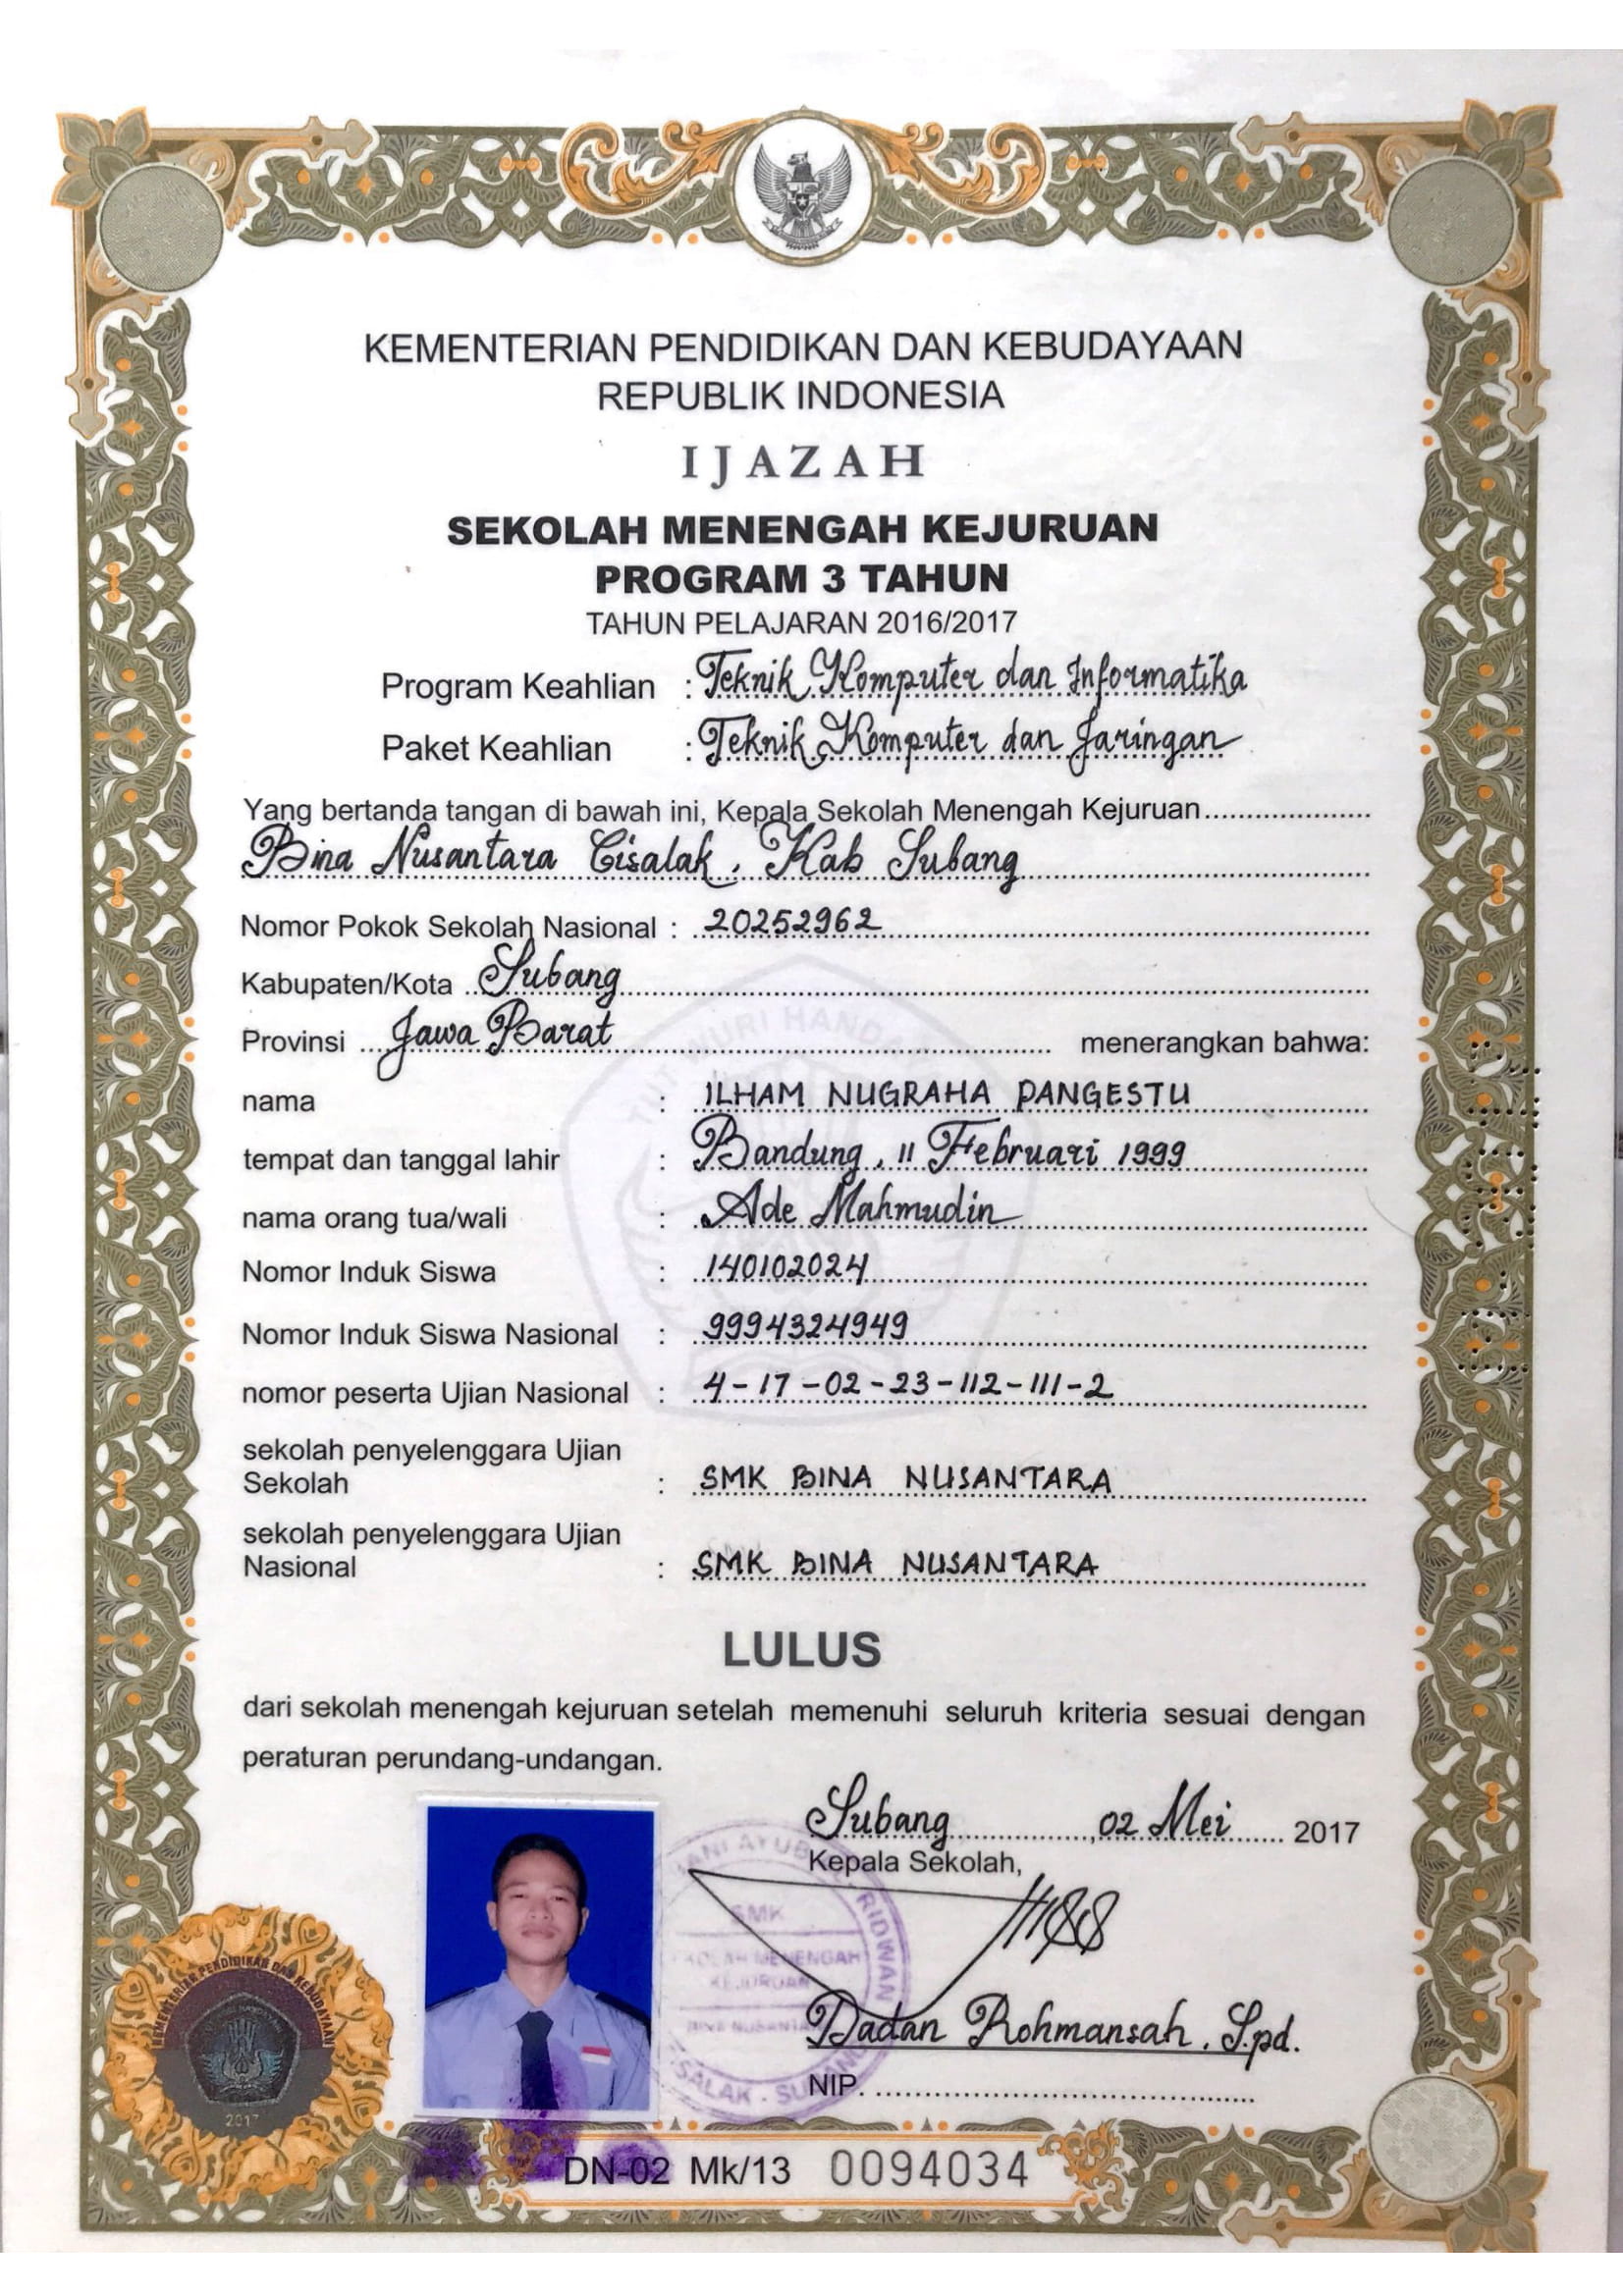 KEMENTERIAN PENDIDIKAN DAN KEBUDAYAAN
REPUBLIK INDONESIA
IJAZAH
SEKOLAH MENENGAH KEJURUAN
PROGRAM 3 TAHUN
TAHUN PELAJARAN 2016/2017
Program Keahlian : Teknik Komputer dan Informatika
Paket Keahlian : Teknik Komputer dan Jaringan
Yang bertanda tangan di bawah ini, Kepala Sekolah Menengah Kejuruan
Bina Nusantara Cisalak, Kab Subang
Nomor Pokok Sekolah Nasional : 20252962
Kabupaten/Kota Subang
Provinsi Jawa Barat menerangkan bahwa:
nama : ILHAM NUGRAHA PANGESTU
tempat dan tanggal lahir : Bandung, 11 Februari 1999
nama orang tua/wali : Ade Mahmudin
Nomor Induk Siswa : 140102024
Nomor Induk Siswa Nasional : 9994324949
nomor peserta Ujian Nasional : 4-17-02-23-112-111-2
sekolah penyelenggara Ujian
Sekolah : SMK BINA NUSANTARA
sekolah penyelenggara Ujian
Nasional : SMK BINA NUSANTARA
LULUS
dari sekolah menengah kejuruan setelah memenuhi seluruh kriteria sesuai dengan
peraturan perundang-undangan.
Subang, 02 Mei 2017
Kepala Sekolah,
SMK
MENENGAH
KEJURUAN
RIDWAN
Dadan Rohmansah, S.pd.
NIP.
KEMENTERIAN PENDIDIKAN DAN KEBUDAYAAN
2017
DN-02 Mk/13 0094034